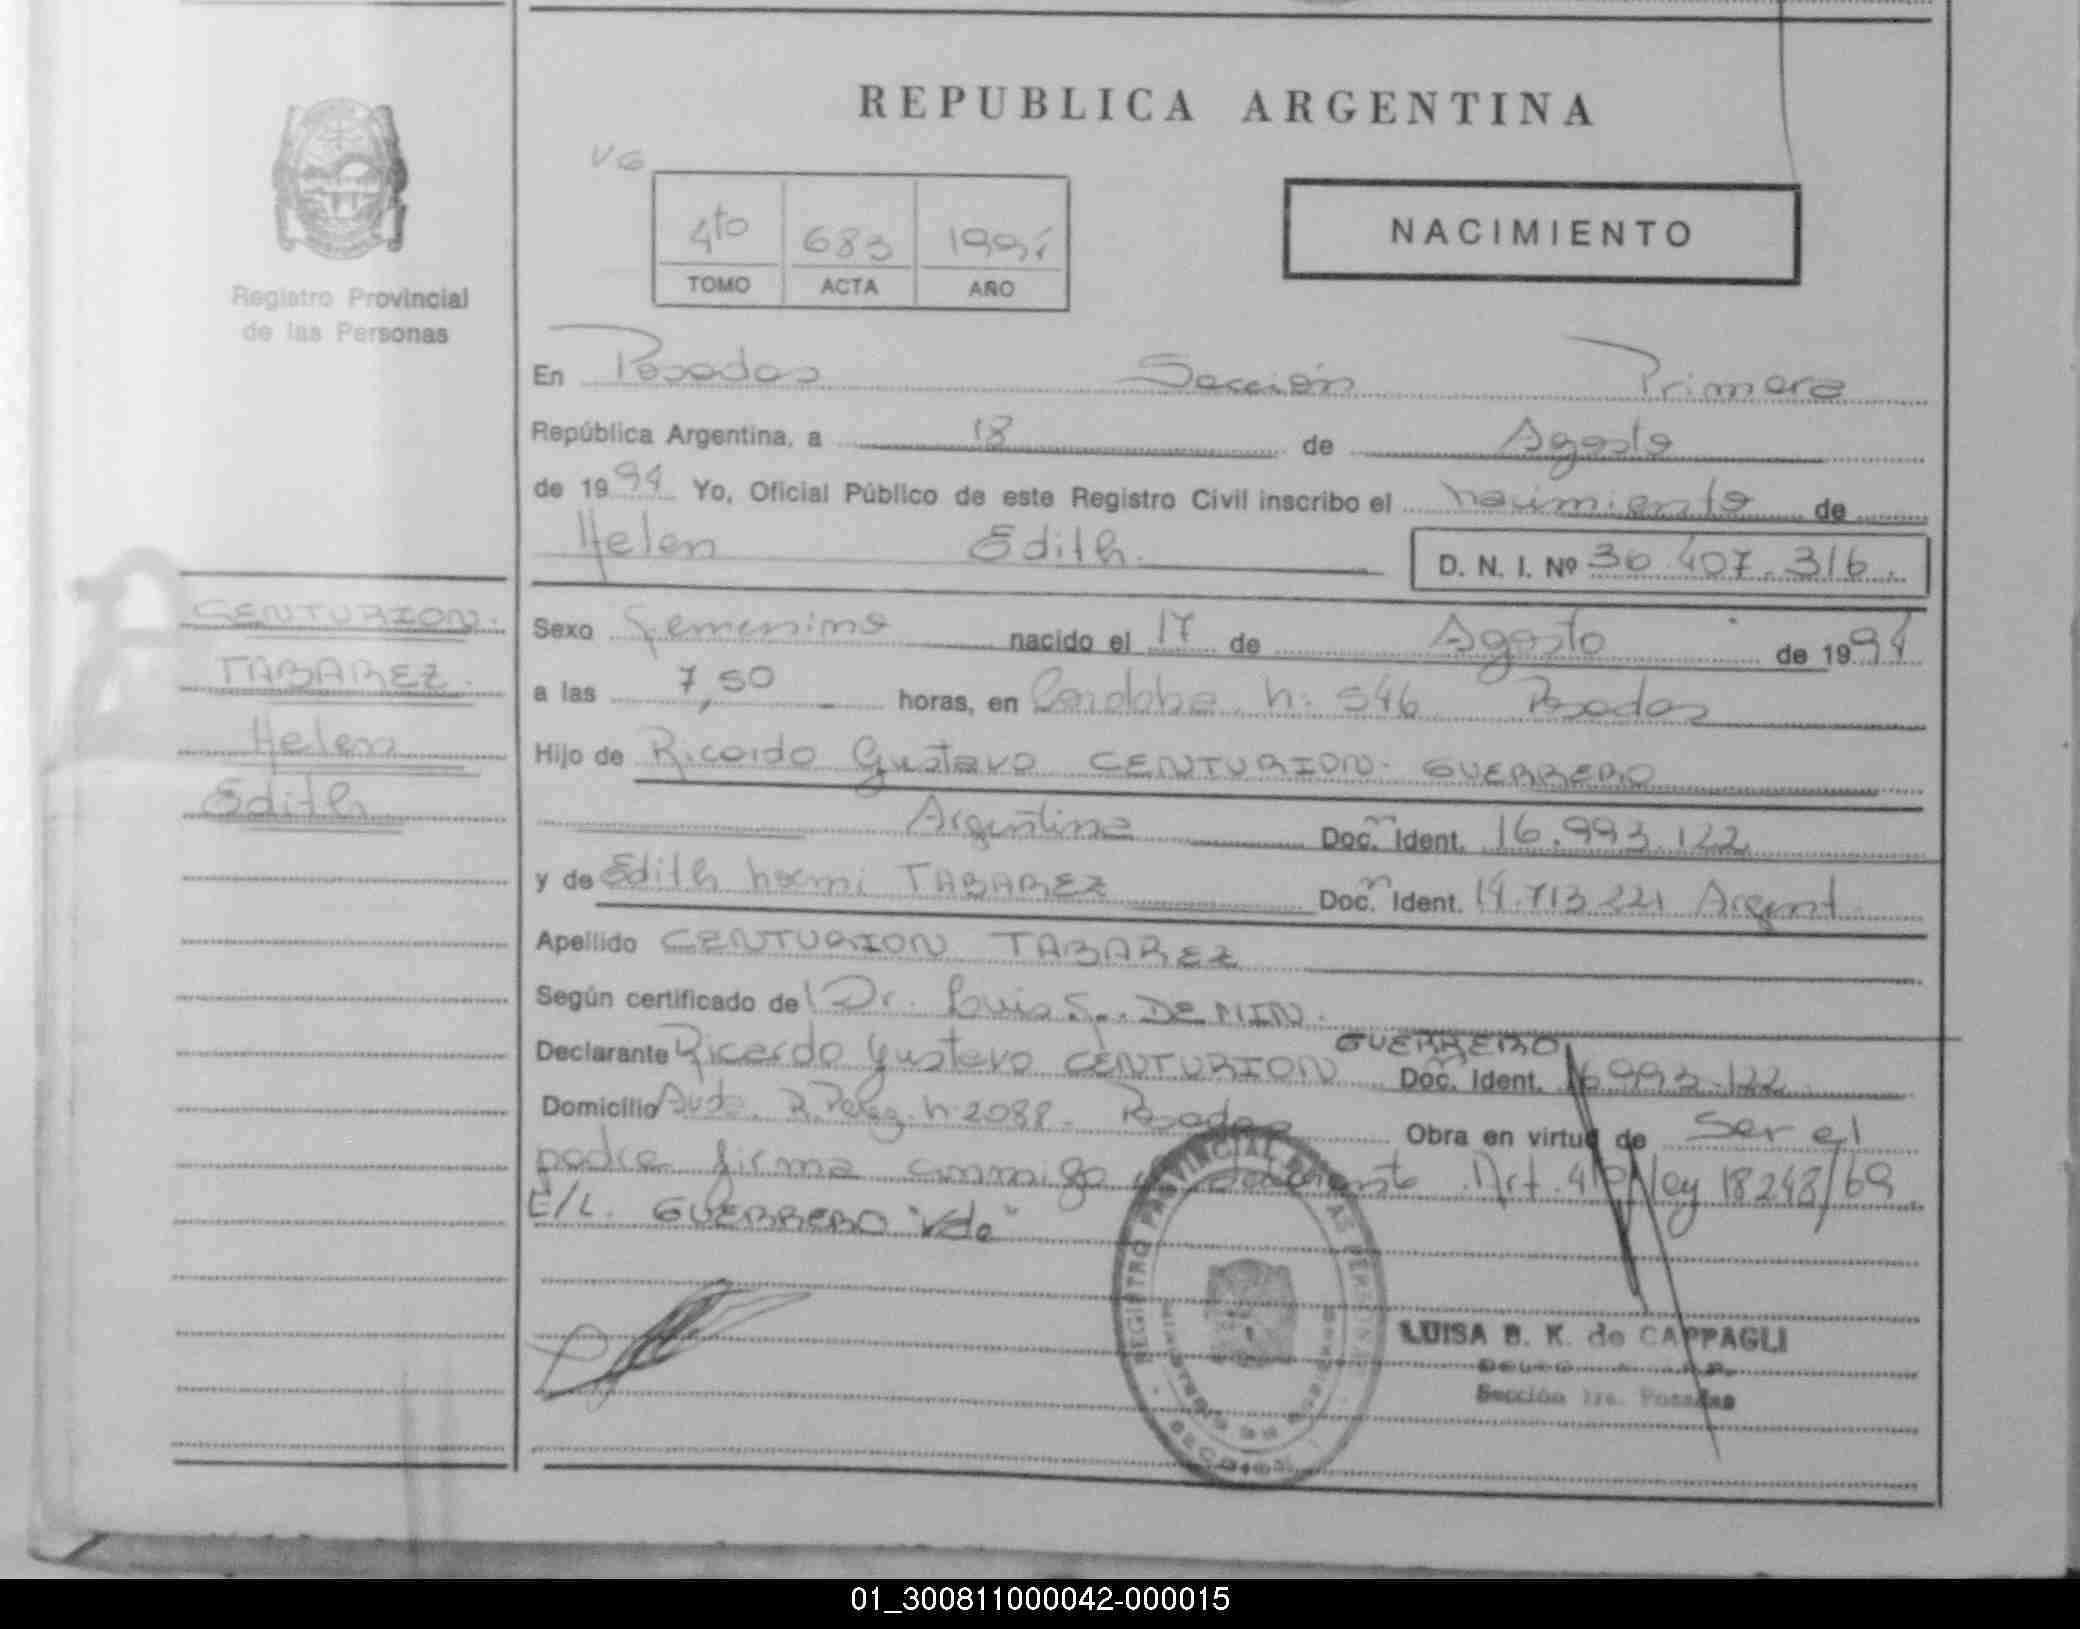 REPUBLICA ARGENTINA
VG
4to 683 1994
TOMO ACTA AÑO
NACIMIENTO
Registro Provincial
de las Personas
En Posadas Sección Primera
República Argentina, a 18 de Agosto
de 1994 Yo, Oficial Público de este Registro Civil inscribo el nacimiento de
Helen Edith.
D. N. I. Nº 36.407.316.
CENTURION.
TABAREZ.
Helen
Edith
Sexo femenino nacido el 17 de Agosto de 1994
a las 7,50 horas, en Cordoba n: 546 Posadas
Hijo de Ricardo Gustavo CENTURION GUERRERO
Argentina Doc. Ident. 16.993.122
y de Edith Noemi TABAREZ Doc. Ident. 14.713.221 Argent.
Apellido CENTURION TABAREZ
Según certificado de Dr. Luis DEMIN.
GUERRERO
Declarante Ricardo Gustavo CENTURION Doc. Ident. 16.993.122
Domicilio Avda. R. n: 2088. Posadas Obra en virtud de Ser el
padre firma conmigo Art. 4to Ley 18248/69.
E/L. GUERRERO "Vale"
REGISTRO PROVINCIAL DE LAS PERSONAS
LUISA B. K. de CAPPAGLI
Sección 1ra. Posadas
01_300811000042-000015